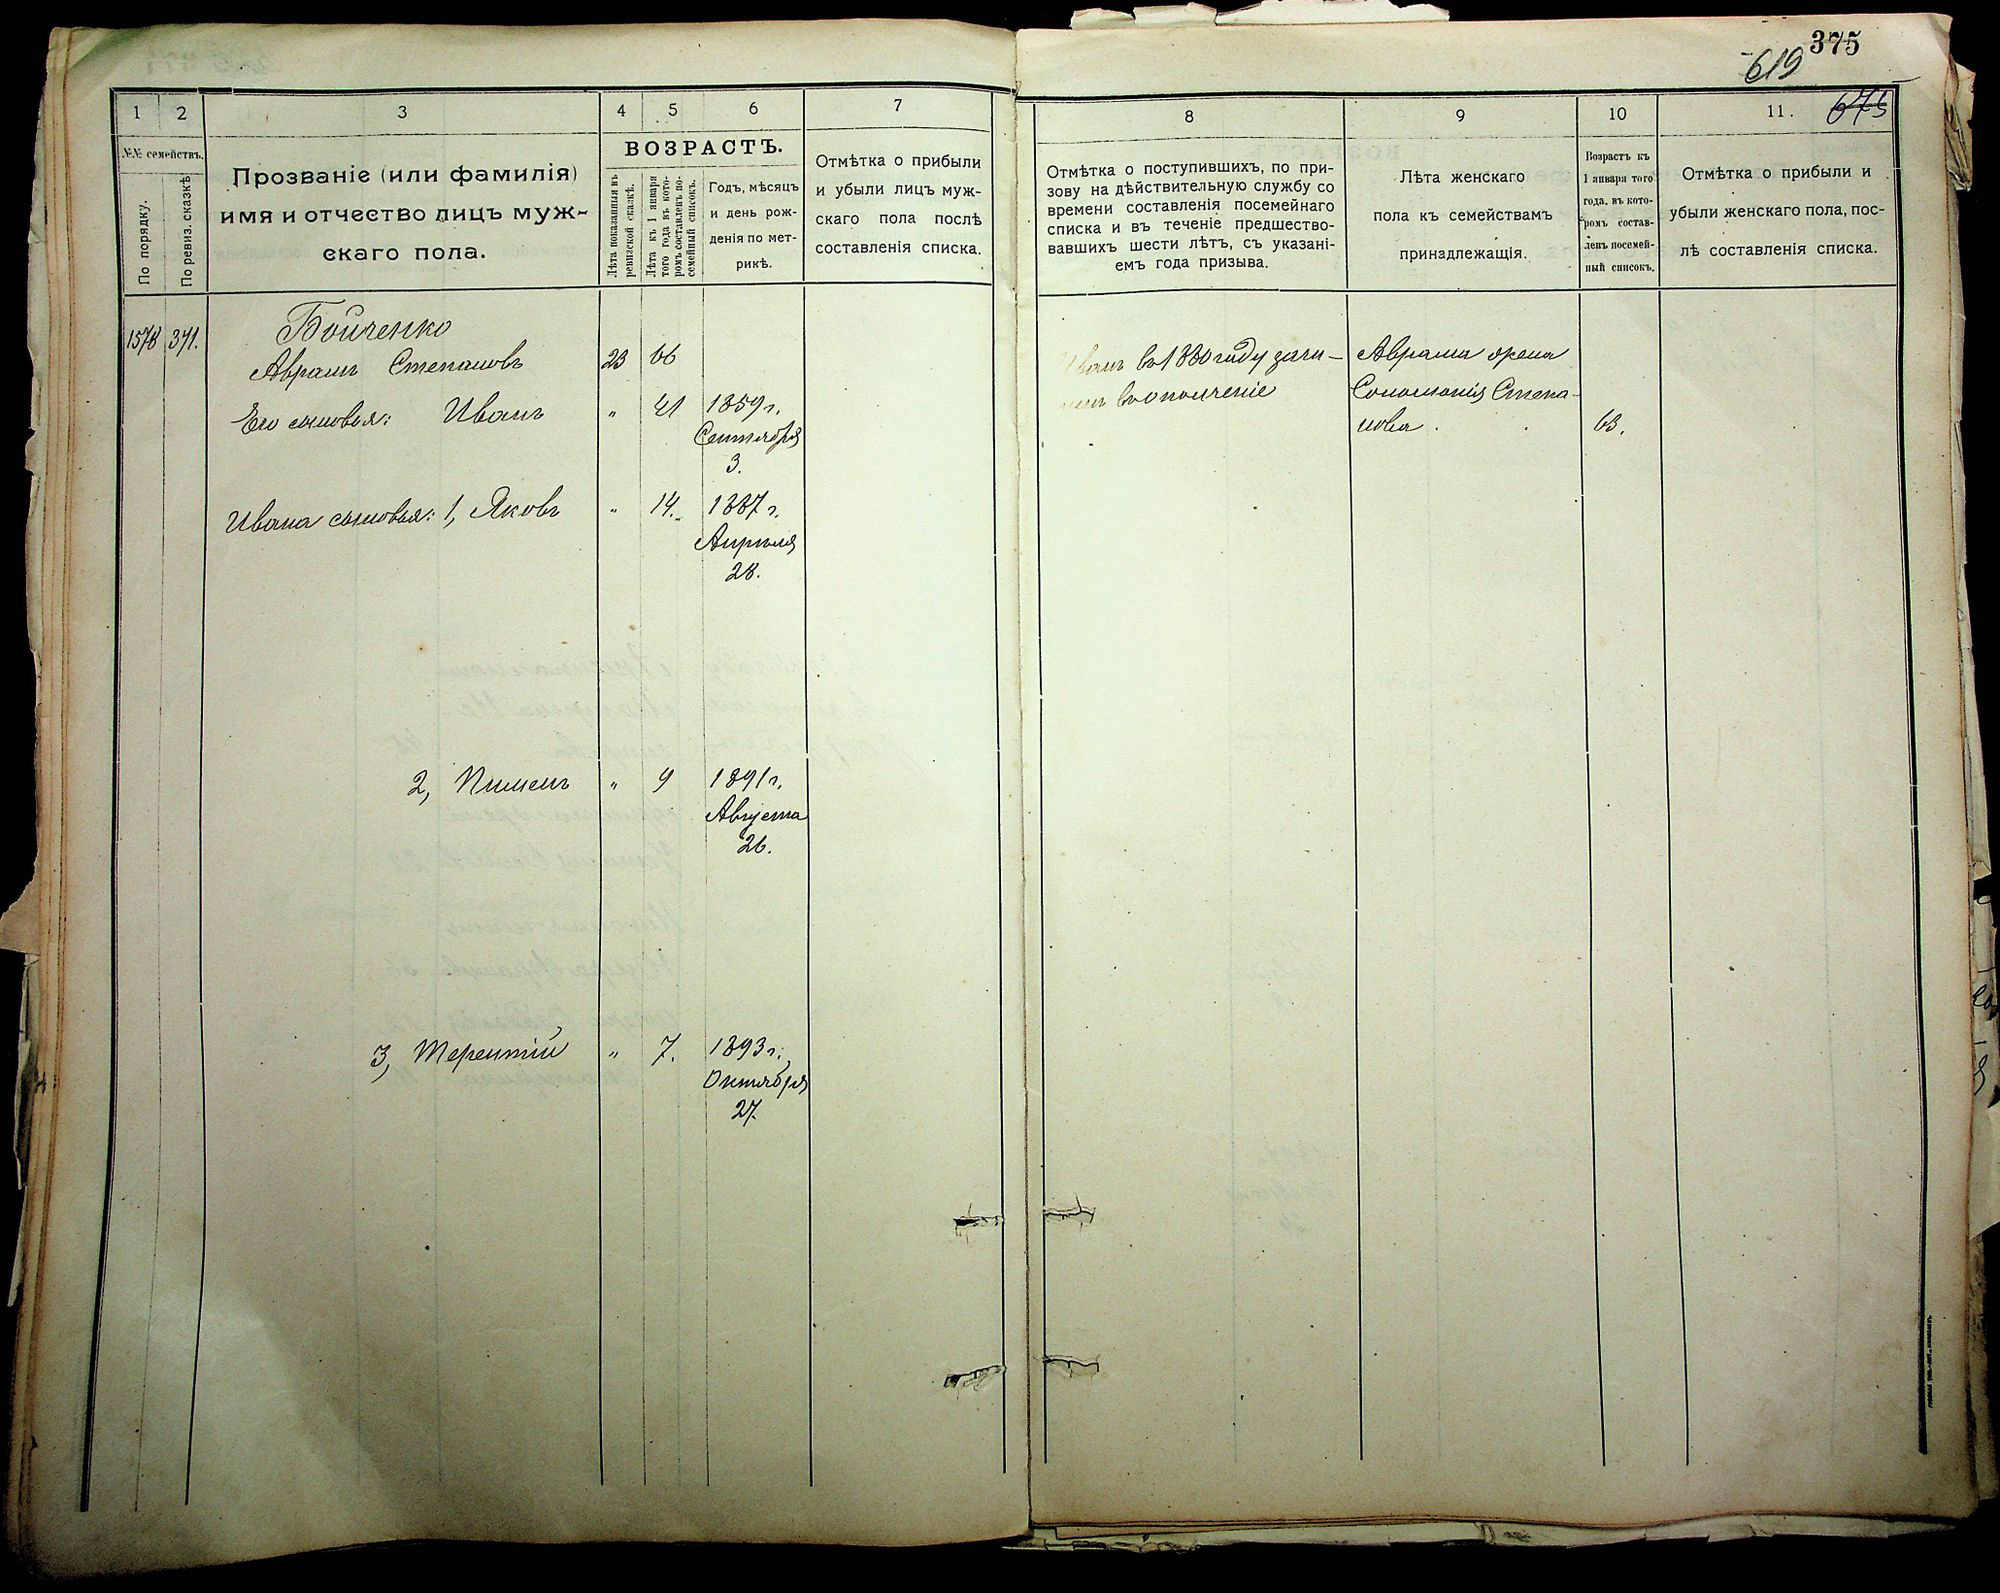 375
619
675
1
2
3
4
5
6
7
№№ семействъ.
По порядку.
По ревиз. сказкѣ
Прозваніе (или фамилія)
имя и отчество лицъ муж-
скаго пола.
ВОЗРАСТЪ.
Лѣта показанныя въ
ревизской сказкѣ.
Лѣта къ 1 января
того года въ кото-
ромъ составленъ по-
семейный списокъ.
Годъ, мѣсяцъ
и день рож-
денія по мет-
рикѣ.
Отмѣтка о прибыли
и убыли лицъ муж-
скаго пола послѣ
составленія списка.
8
9
10
11.
Отмѣтка о поступившихъ, по при-
зову на дѣйствительную службу со
времени составленія посемейнаго
списка и въ теченіе предшество-
вавшихъ шести лѣтъ, съ указані-
емъ года призыва.
Лѣта женскаго
пола къ семействамъ
принадлежащія.
Возрастъ къ
1 января того
года, въ кото-
ромъ состав-
ленъ посемей-
ный списокъ.
Отмѣтка о прибыли и
убыли женскаго пола, пос-
лѣ составленія списка.
1578 371.
Бойченко
Аврамъ Степановъ 23 66
Его сыновья: Иванъ " 41 1859 г.
Сентября
3.
Ивана сыновья: 1, Яковъ " 14. 1887 г.
Апрѣля
28.
2, Пименъ " 9 1891 г.
Августа
26.
3, Терентій " 7. 1893 г.
Октября
27.
Иванъ въ 1880 году зачи-
ленъ въ ополченіе
Аврама жена
Соломонія Степа-
нова 63.